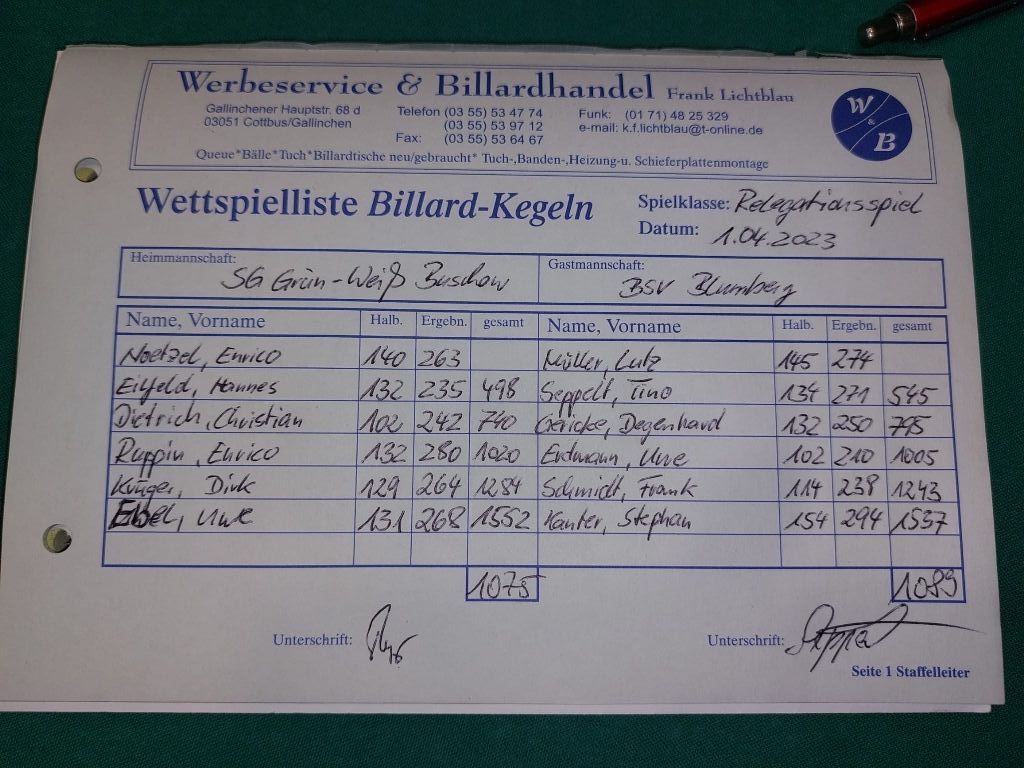 Werbeservice & Billardhandel Frank Lichtblau
Gallinchener Hauptstr. 68 d
03051 Cottbus/Gallinchen
Telefon (03 55) 53 47 74
(03 55) 53 97 12
Fax: (03 55) 53 64 67
Funk: (01 71) 48 25 329
e-mail: k.f.lichtblau@t-online.de
W & B
Queue*Bälle*Tuch*Billardtische neu/gebraucht* Tuch-,Banden-,Heizung-u. Schieferplattenmontage
Wettspielliste Billard-Kegeln
Spielklasse: Relegationsspiel
Datum: 1.04.2023
Heimmannschaft: SG Grün-Weiß Buschow
Gastmannschaft: BSV Blumberg
Name, Vorname Halb. Ergebn. gesamt Name, Vorname Halb. Ergebn. gesamt
Noetzel, Enrico 140 263 Müller, Lutz 145 274
Eilfeld, Hannes 132 235 498 Seppelt, Tino 134 271 545
Dietrich, Christian 102 242 740 Gericke, Degenhard 132 250 795
Ruppin, Enrico 132 280 1020 Erdmann, Uwe 102 210 1005
Krüger, Dirk 129 264 1284 Schmidt, Frank 114 238 1243
Ebel, Uwe 131 268 1552 Kanter, Stephan 154 294 1537
1075 1089
Unterschrift: Unterschrift:
Seite 1 Staffelleiter